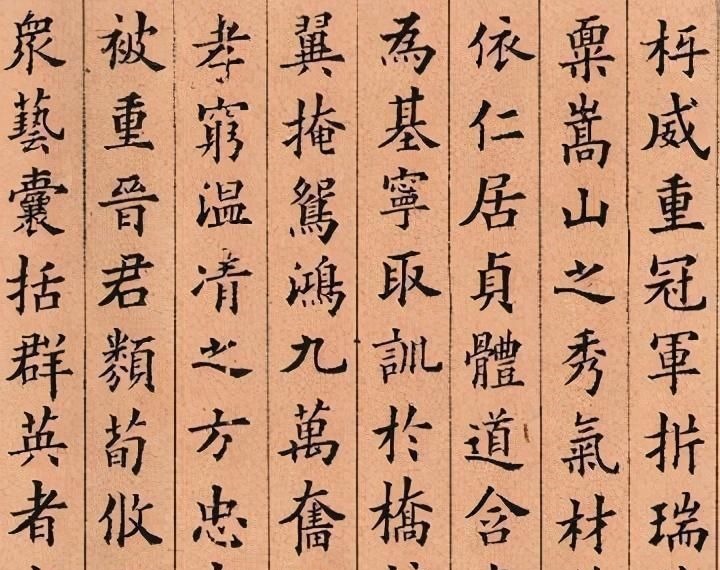 威重冠軍折瑞
稟嵩山之秀氣材
依仁居貞體道含
為基寧取訓於橋
翼掩鴛鴻九萬奮
孝窮温凊之方忠
被重晉君類荀攸
眾藝囊括群英者